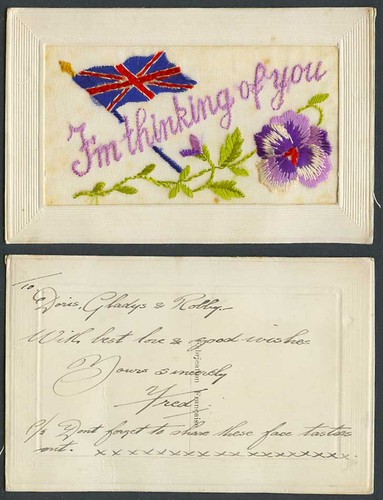 I'm thinking of you
To
Doris, Gladys & Robby.
With best love & good wishes
Yours sincerely
Fred.
P/S Dont forget to share these face tasters
out. xxxxxxxxxxxxxxxxxxx
Fabrication Française